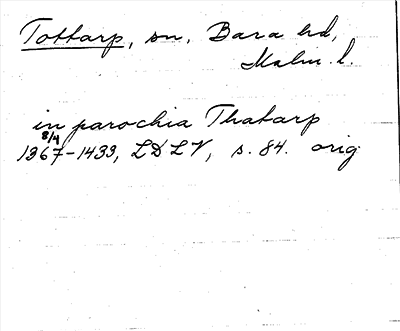 Tottarp, sn, Bara hd,
Malm. l.
in parochia Thatarp
8/4
1367-1433, LDLV, s. 84. orig